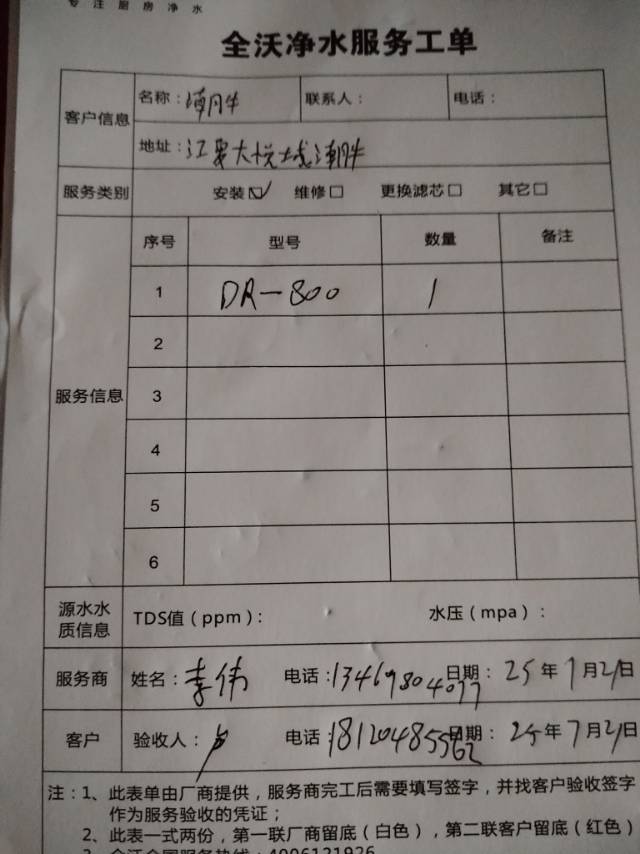 专注厨房净水
全沃净水服务工单
客户信息
名称：潮州牛 联系人： 电话：
地址：江寒大悦城潮州牛
服务类别 安装☑ 维修□ 更换滤芯□ 其它□
服务信息
序号 型号 数量 备注
1 DR-800 1
2
3
4
5
6
源水水质信息 TDS值（ppm）： 水压（mpa）：
服务商 姓名：李伟 电话：13469804077 日期：25年7月21日
客户 验收人： 电话：18120485562 日期：25年7月21日
注：1、此表单由厂商提供，服务商完工后需要填写签字，并找客户验收签字
作为服务验收的凭证；
2、此表一式两份，第一联厂商留底（白色），第二联客户留底（红色）
3、全沃全国服务热线：4006121926